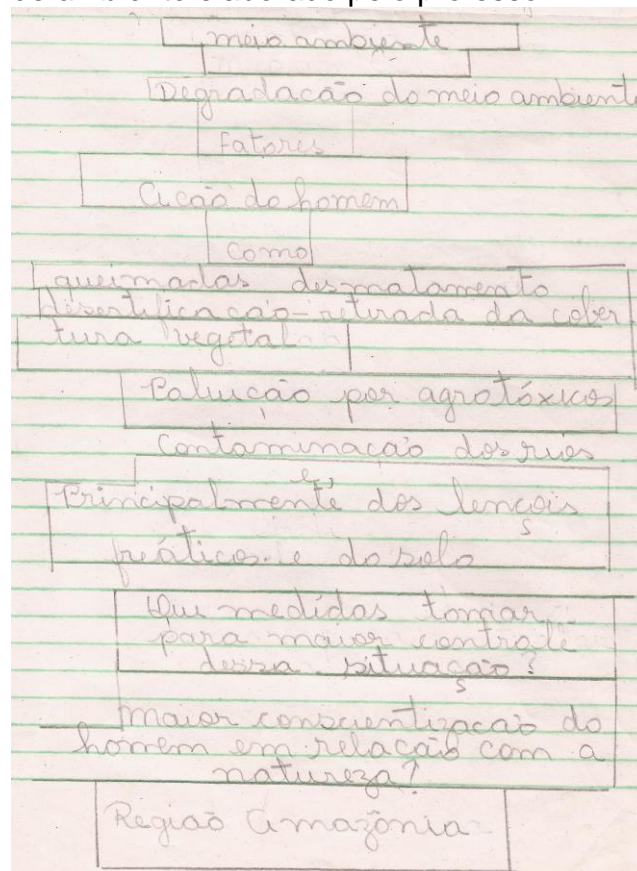 meio ambiente
Degradacão do meio ambiente
Fatores
Acão do homem
como
queimadas desmatamento
desertificacão - retirada da cober
tura vegetal
Poluicão por agrotóxicos
Contaminacão dos rios
e,
Principalmente dos lencóis
s
freáticos e do solo
Que medidas tomar
para maior controle
dessa situação?
s
maior conscientizacão do
homem em relacão com a
natureza?
Região Amazônia